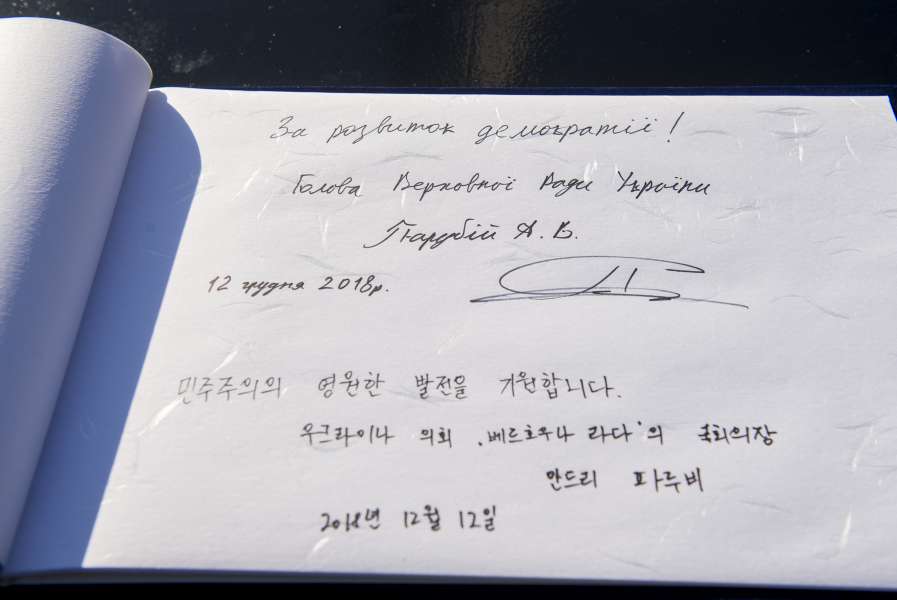 За розвиток демократії!
Голова Верховної Ради України
Парубій А. В.
12 грудня 2018р.
민주주의의 영원한 발전을 기원합니다.
우크라이나 의회 '베르호우나 라다'의 국회의장
안드리 파루비
2018년 12월 12일